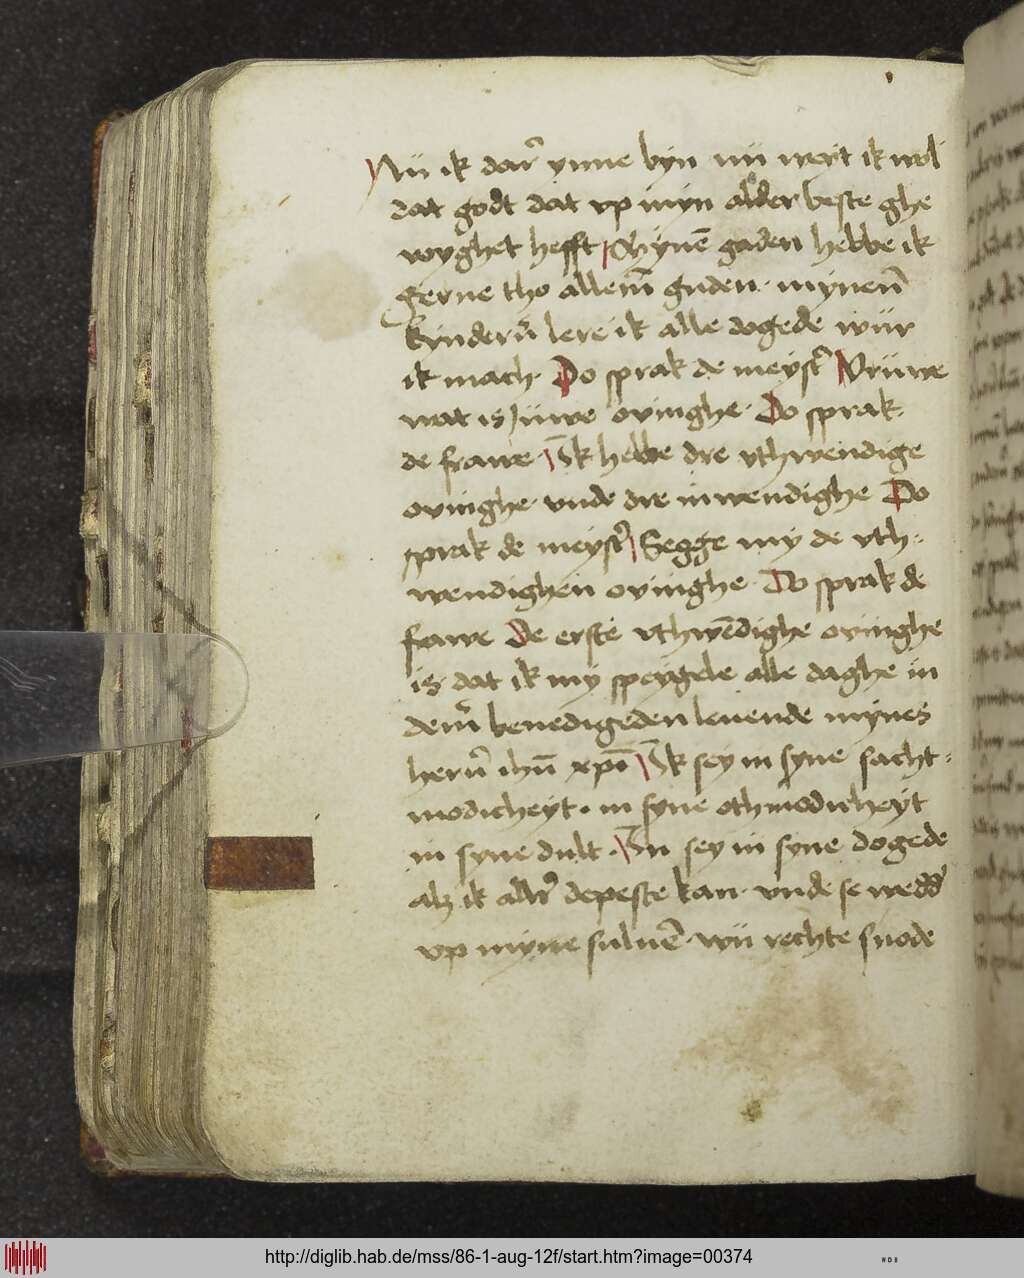 Nu ik dar̄ ynne byn nu weyt ik wol
dat godt dat vp myn alder beste ghe
voyghet hefft Mynē gaden hebbe ik
gerne tho allem̄ guden · mynen̄
kyndern̄ lere ik alle dogede wur
ik mach · Do sprak de meyst̄ Vruwe
wat is Juwe ovinghe · Do sprak
de frawe Ik hebbe dre vthwendige
ovinghe vnde dre inwendighe Do
sprak de meyst̄ Segge my de vth-
wendighen ovinghe · Do sprak de
frawe De erste vthwēdighe ovinghe
is dat ik my speygele alle daghe in
dem̄ benedigeden leuende mynes
hern̄ ihū xp̄i Ik sey in syne sacht-
modicheyt · in syne othmodicheyt
in syne dult · In sey in syne dogede
alz ik alle depeste kan · vnde se wedd̄
vp myne suluē · wu rechte snode
http://diglib.hab.de/mss/86-1-aug-12f/start.htm?image=00374